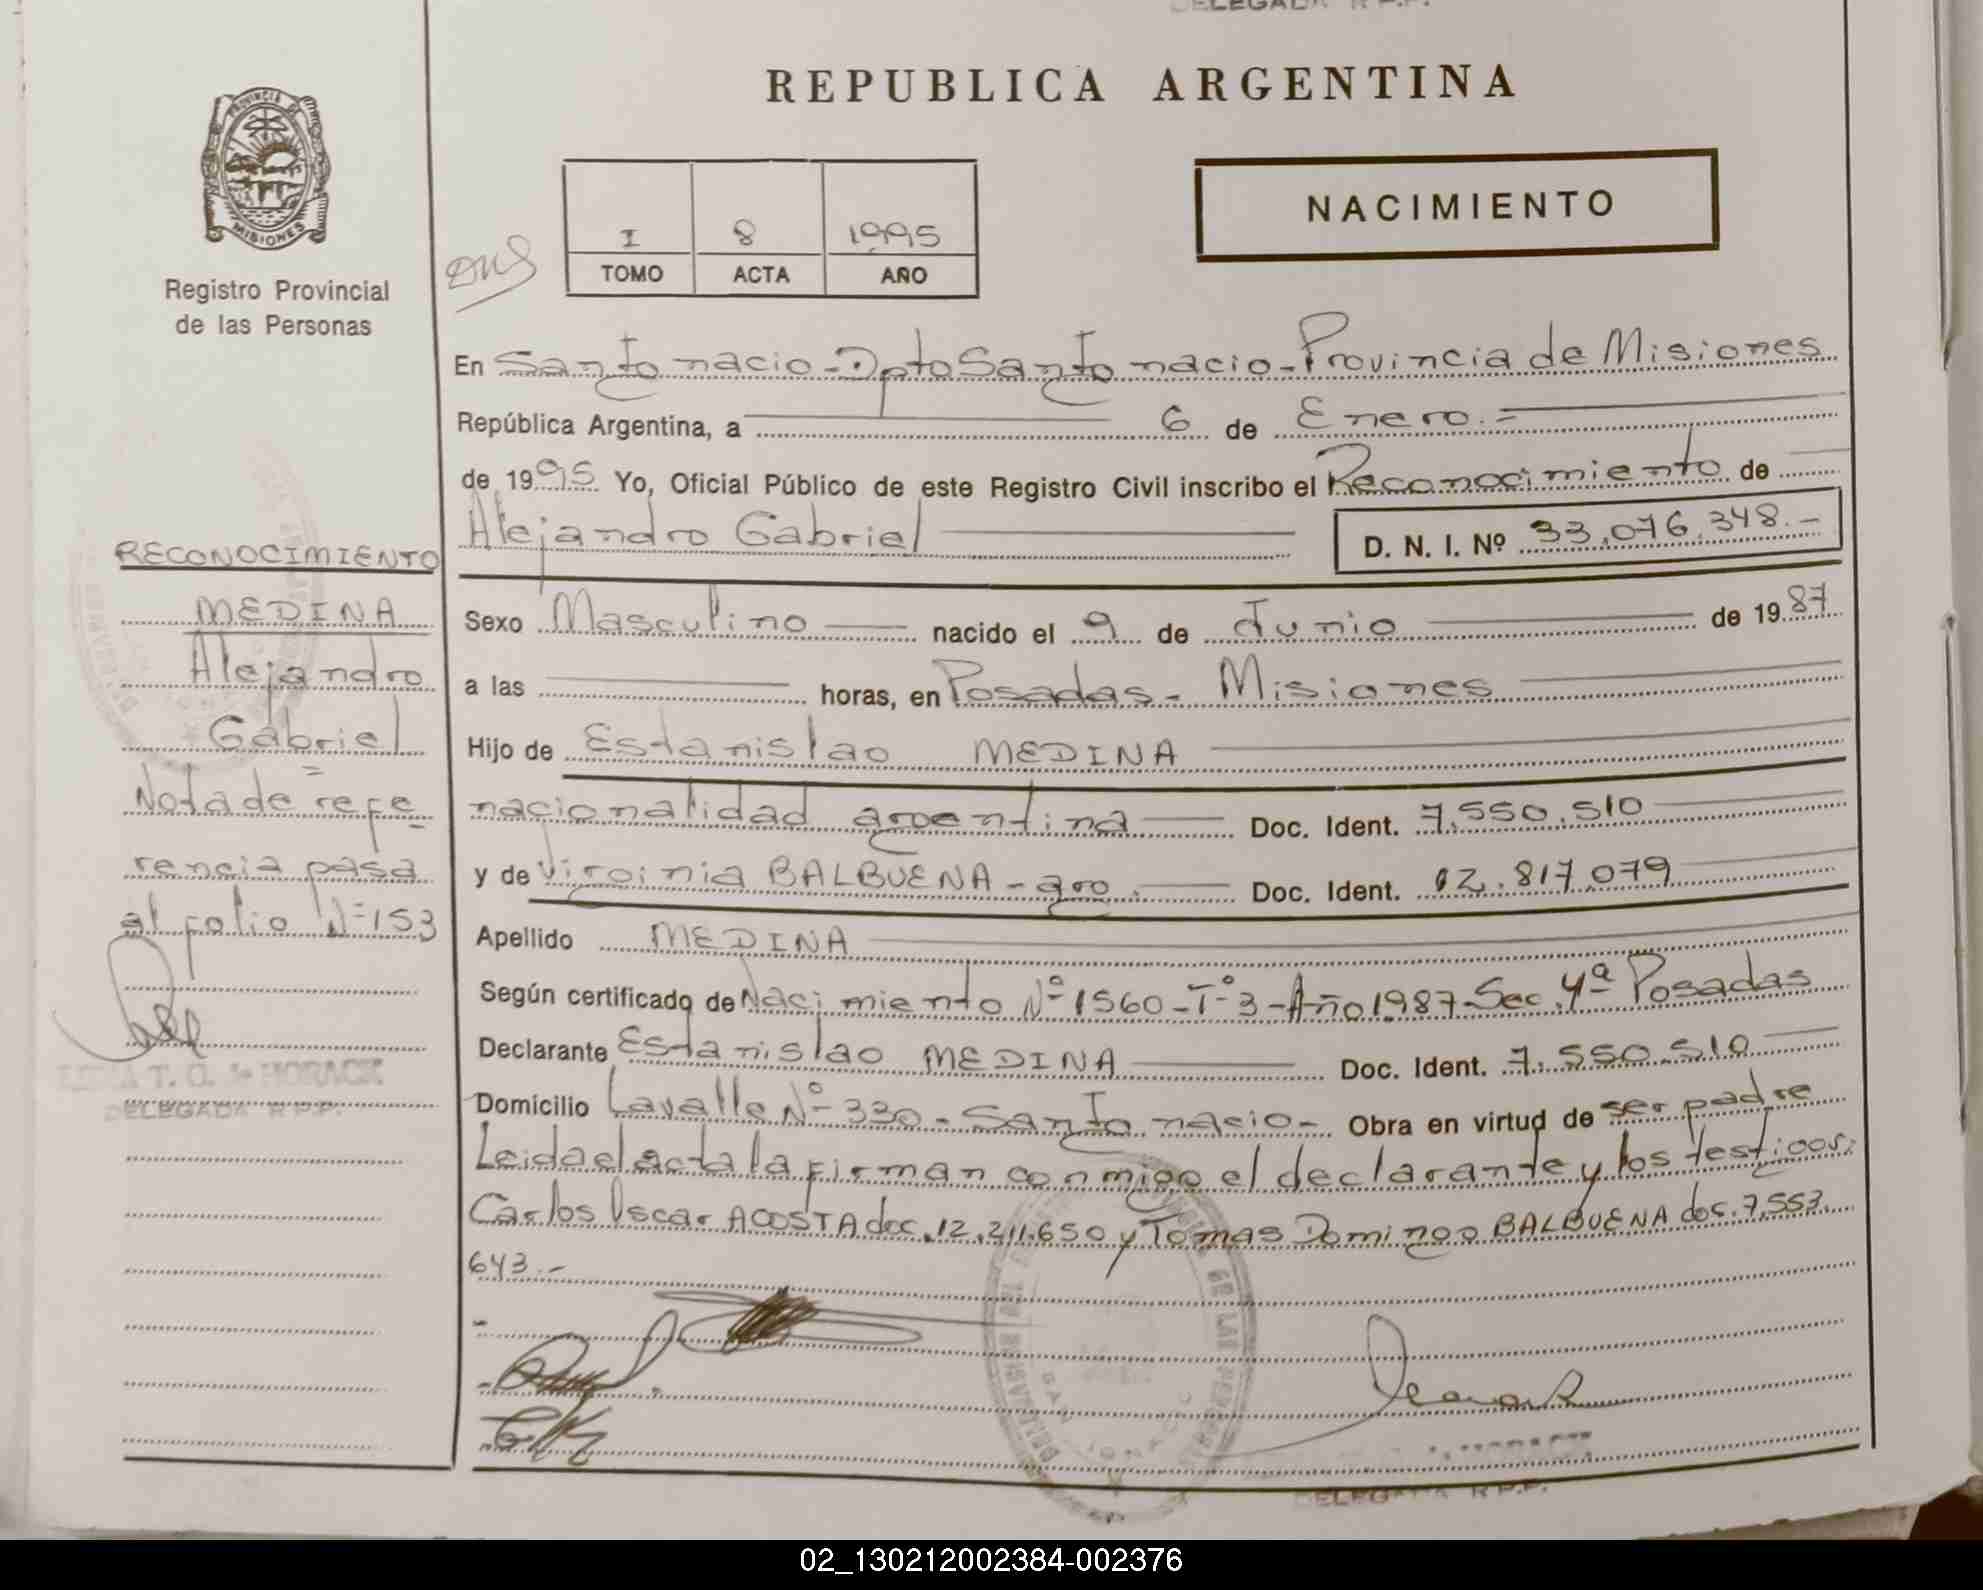 DELEGADA R.P.P.
REPUBLICA ARGENTINA
PROVINCIA DE
MISIONES
Registro Provincial
de las Personas
NACIMIENTO
I 8 1995
TOMO ACTA AÑO
En San Ignacio - Dpto San Ignacio - Provincia de Misiones
República Argentina, a 6 de Enero.=
de 1995 Yo, Oficial Público de este Registro Civil inscribo el Reconocimiento de
Alejandro Gabriel D. N. I. Nº 33.076.348.-
Sexo Masculino nacido el 9 de Junio de 1987
a las horas, en Posadas - Misiones
Hijo de Estanislao MEDINA
nacionalidad argentina Doc. Ident. 7.550.510
y de Virginia BALBUENA - arg. Doc. Ident. 12.817.079
Apellido MEDINA
Según certificado de Nacimiento Nº 1560 - Tº 3 - Año 1987 - Sec. 4ª Posadas
Declarante Estanislao MEDINA Doc. Ident. 7.550.510
Domicilio Lavalle Nº 330 - San Ignacio - Obra en virtud de ser padre
Leida el acta la firman conmigo el declarante y los testigos:
Carlos Oscar ACOSTA doc. 12.211.650 y Tomas Domingo BALBUENA doc. 7.553.
643.-
RECONOCIMIENTO
MEDINA
Alejandro
Gabriel
=
Nota de refe
rencia pasa
al folio Nº 153
HORACK
DELEGADA R.P.P.
HORACK
DELEGADA R.P.P.
02_130212002384-002376